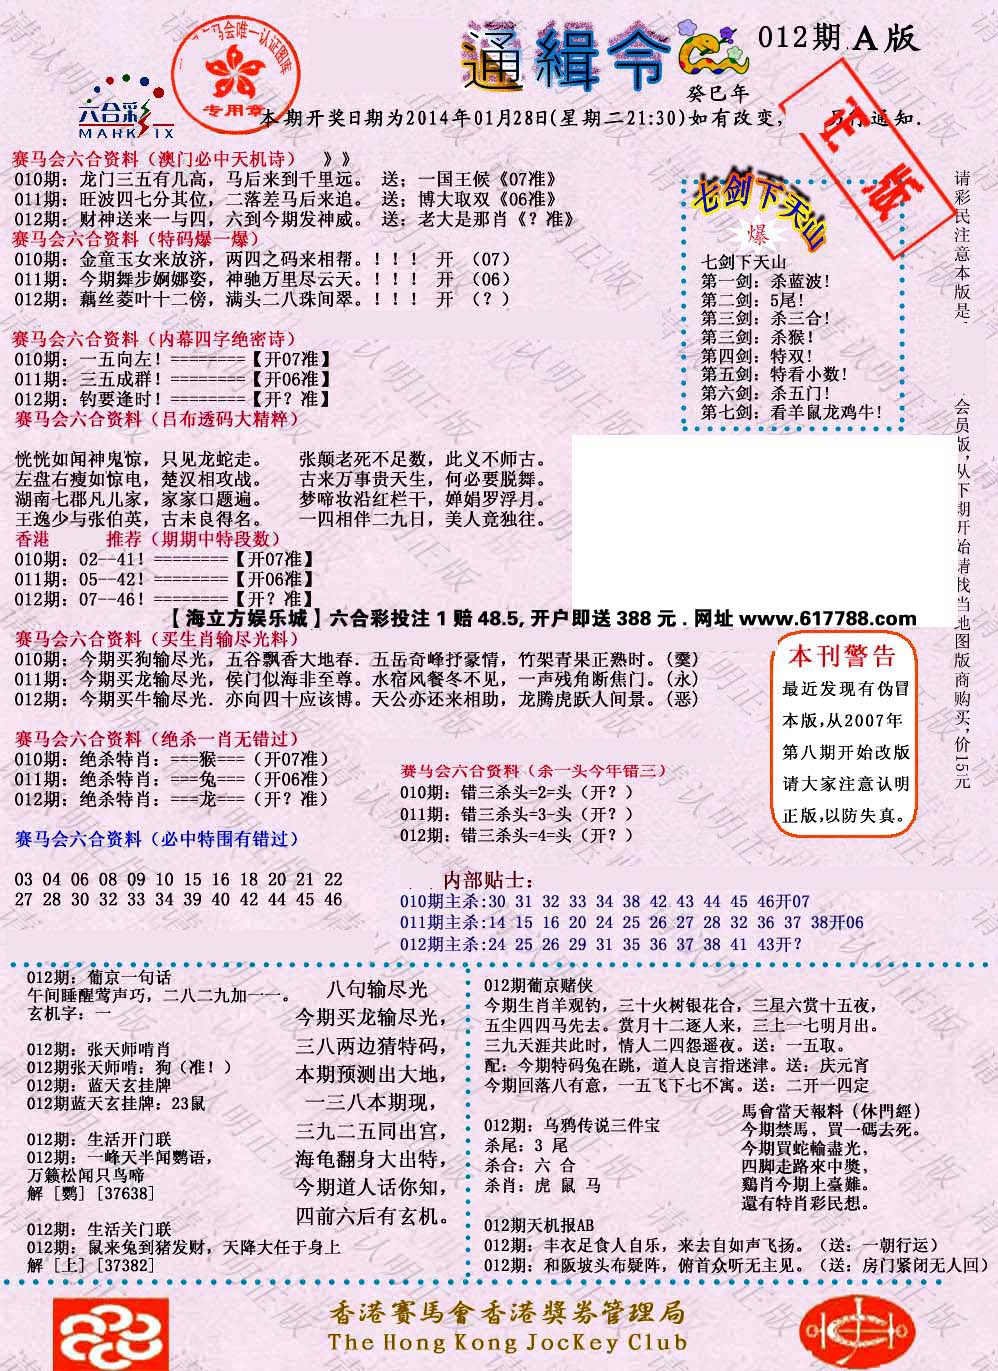 通緝令
012期 A版
癸巳年
六合彩
MARK SIX
专用章
本期开奖日期为2014年01月28日(星期二21:30)如有改变,
通知.
赛马会六合资料（澳门必中天机诗） 》》
010期: 龙门三五有几高, 马后来到千里远。 送; 一国王候《07准》
011期: 旺波四七分其位, 二落差马后来追。 送; 博大取双《06准》
012期: 财神送来一与四, 六到今期发神威。 送: 老大是那肖《? 准》
赛马会六合资料（特码爆一爆）
010期: 金童玉女来放济, 两四之码来相帮。!!! 开 （07）
011期: 今期舞步婀娜姿, 神驰万里尽云天。!!! 开 （06）
012期: 藕丝菱叶十二傍, 满头二八珠间翠。!!! 开 （? ）
赛马会六合资料（内幕四字绝密诗）
010期: 一五向左! ========【开07准】
011期: 三五成群! ========【开06准】
012期: 钓要逢时! ========【开? 准】
赛马会六合资料（吕布透码大精粹）
恍恍如闻神鬼惊, 只见龙蛇走。 张颠老死不足数, 此义不师古。
左盘右瘦如惊电, 楚汉相攻战。 古来万事贵天生, 何必要脱舞。
湖南七郡凡儿家, 家家口题遍。 梦啼妆沿红栏干, 婵娟罗浮月。
王逸少与张伯英, 古未良得名。 一四相伴二九日, 美人竟独往。
香港 推荐（期期中特段数）
010期: 02--41! ========【开07准】
011期: 05--42! ========【开06准】
012期: 07--46! ========【开? 准】
【海立方娱乐城】六合彩投注 1 赔 48.5, 开户即送 388 元 . 网址 www.617788.com
赛马会六合资料（买生肖输尽光料）
010期: 今期买狗输尽光, 五谷飘香大地春. 五岳奇峰抒豪情, 竹架青果正熟时。(羹)
011期: 今期买龙输尽光, 侯门似海非至尊。水宿风餐冬不见, 一声残角断焦门。(永)
012期: 今期买牛输尽光. 亦向四十应该博。天公亦还来相助, 龙腾虎跃人间景。(恶)
赛马会六合资料（绝杀一肖无错过）
010期: 绝杀特肖: ===猴===（开07准）
011期: 绝杀特肖: ===兔===（开06准）
012期: 绝杀特肖: ===龙===（开? 准）
赛马会六合资料（必中特围有错过）
03 04 06 08 09 10 15 16 18 20 21 22
27 28 30 32 33 34 39 40 42 44 45 46
赛马会六合资料（杀一头今年错三）
010期: 错三杀头=2=头（开? ）
011期: 错三杀头=3-头（开? ）
012期: 错三杀头=4=头（开? ）
内部贴士:
010期主杀:30 31 32 33 34 38 42 43 44 45 46开07
011期主杀:14 15 16 20 24 25 26 27 28 32 36 37 38开06
012期主杀:24 25 26 29 31 35 36 37 38 41 43开?
七剑下天山
爆
七剑下天山
第一剑: 杀蓝波!
第二剑: 5尾!
第三剑: 杀三合!
第三剑: 杀猴!
第四剑: 特双!
第五剑: 特看小数!
第六剑: 杀五门!
第七剑: 看羊鼠龙鸡牛!
请彩民注意本版是
会员版,从下期开始请找当地图版商购买,价15元
本刊警告
最近发现有伪冒
本版,从2007年
第八期开始改版
请大家注意认明
正版,以防失真。
012期: 葡京一句话
午间睡醒莺声巧, 二八二九加一一。
玄机字: 一
012期: 张天师啃肖
012期张天师啃: 狗（准! ）
012期: 蓝天玄挂牌
012期蓝天玄挂牌: 23鼠
012期: 生活开门联
012期: 一峰天半闻鹦语,
万籁松闻只鸟啼
解 [鹦] [37638]
012期: 生活关门联
012期: 鼠来兔到猪发财, 天降大任于身上
解 [上] [37382]
八句输尽光
今期买龙输尽光,
三八两边猜特码,
本期预测出大地,
一三八本期现,
三九二五同出宫,
海龟翻身大出特,
今期道人话你知,
四前六后有玄机。
012期葡京赌侠
今期生肖羊观钓, 三十火树银花合, 三星六赏十五夜,
五尘四四马先去。赏月十二逐人来, 三上一七明月出。
三九天涯共此时, 情人二四怨遥夜。送: 一五取。
配: 今期特码兔在跳, 道人良言指迷津。送: 庆元宵
今期回落八有意, 一五飞下七不寓。送: 二开一四定
012期: 乌鸦传说三件宝
杀尾: 3 尾
杀合: 六 合
杀肖: 虎 鼠 马
馬會當天報料 (休門經)
今期禁馬, 買一碼去死。
今期買蛇輸盡光,
四脚走路來中獎,
鷄肖今期上臺難。
還有特肖彩民想。
012期天机报AB
012期: 丰衣足食人自乐, 来去自如声飞扬。（送: 一朝行运）
012期: 和阪坡头布疑阵, 俯首众听无主见。（送: 房门紧闭无人回）
香港賽馬會香港獎券管理局
The Hong Kong JocKey Club